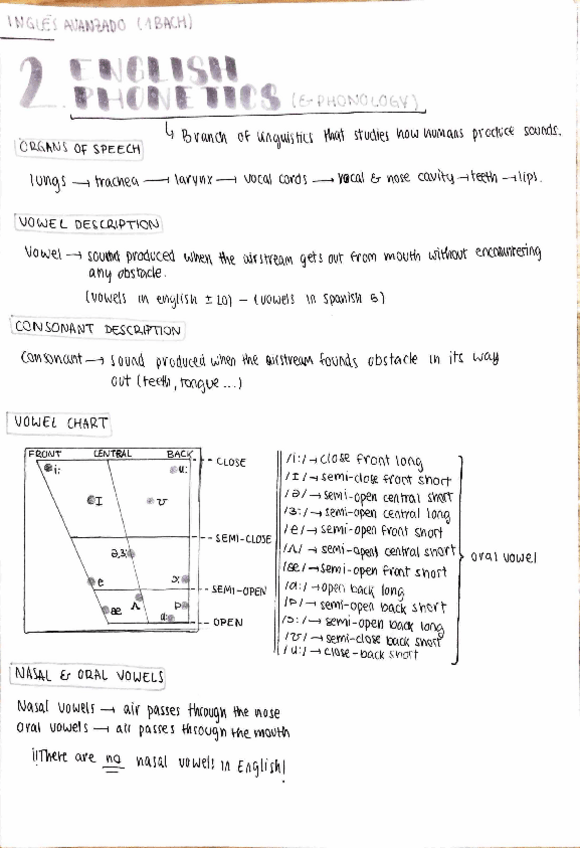 INGLÉS AVANZADO (1 BACH)
2. ENGLISH
PHONETICS (& PHONOLOGY)
↳ Branch of linguistics that studies how humans produce sounds.
ORGANS OF SPEECH
lungs → trachea → larynx → vocal cords → vocal & nose cavity → teeth → lips.
VOWEL DESCRIPTION
Vowel → sound produced when the airstream gets out from mouth without encountering
any obstacle.
(vowels in english ± 20) - (vowels in Spanish 5)
CONSONANT DESCRIPTION
Consonant → sound produced when the airstream founds obstacle in its way
out (teeth, tongue...)
VOWEL CHART
FRONT CENTRAL BACK
CLOSE
i: u:
I ʊ
SEMI-CLOSE
ə,3:
e ɔ:
SEMI-OPEN
æ ʌ ɒ
ɑ:
OPEN
/i:/ → close front long
/I/ → semi-close front short
/ə/ → semi-open central short
/3:/ → semi-open central long
/e/ → semi-open front short
/ʌ/ → semi-open central short
/æ/ → semi-open front short
/ɑ:/ → open back long
/ɒ/ → semi-open back short
/ɔ:/ → semi-open back long
/ʊ/ → semi-close back short
/u:/ → close-back short
oral vowel
NASAL & ORAL VOWELS
Nasal vowels → air passes through the nose
Oral vowels → air passes through the mouth
¡¡There are no nasal vowels in English!